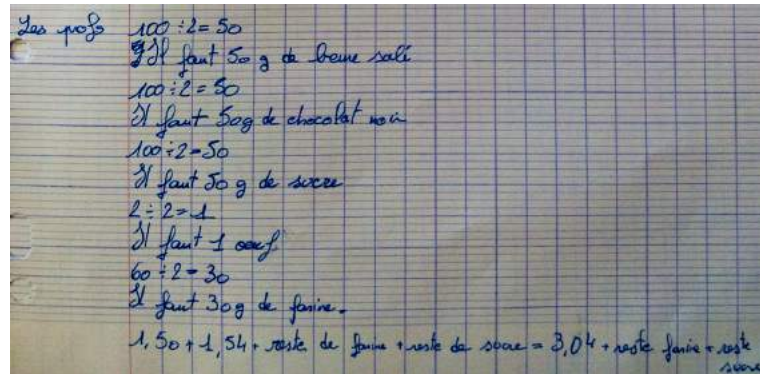 Les profs 100 ÷ 2 = 50
Il faut 50 g de beure salé
100 ÷ 2 = 50
Il faut 50g de chocolat noir
100 ÷ 2 = 50
Il faut 50 g de sucre
2 ÷ 2 = 1
Il faut 1 oeuf
60 ÷ 2 = 30
Il faut 30g de farine.
1,50 + 1,54 + reste de farine + reste de sucre = 3,04 + reste farine + reste
sucre